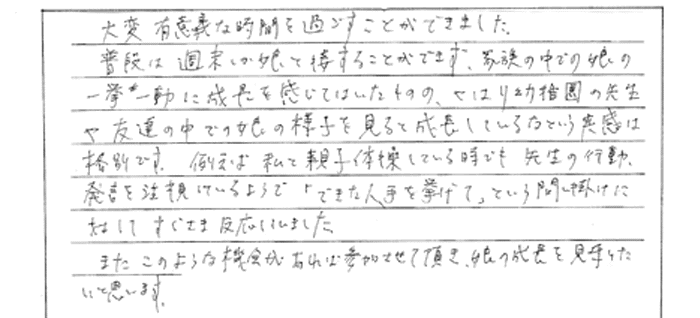 大変有意義な時間を過ごすことができました。
普段は週末しか娘と接することができず、家族の中での娘の
一挙一動に成長を感じてはいたものの、やはり幼稚園の先生
や友達の中での娘の様子を見ると成長しているなという実感は
格別です。例えば私と親子体操している時でも先生の行動、
発言を注視しているようで「できた人手を挙げて」という問い掛けに
対してすぐさま反応していました。
またこのような機会があれば参加させて頂き、娘の成長を見守りた
いと思います。